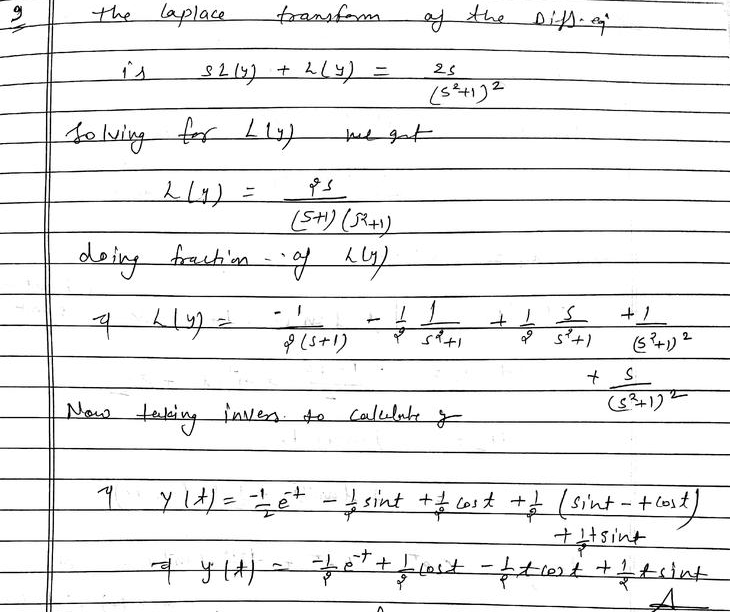 9 the laplace transform of the Diff. eqn
is sL(y) + L(y) = 2s / (s²+1)²
Solving for L(y) we get
L(y) = 2s / (s+1)(s²+1)
doing fraction of L(y)
⇒ L(y) = -1 / 2(s+1) - 1/2 1/s²+1 + 1/2 s/s²+1 + 1/(s²+1)²
+ s/(s²+1)²
Now taking invers. to calculate y
⇒ y(t) = -1/2 e^-t - 1/2 sint + 1/2 cost + 1/2 (sint - t cost)
+ 1/2 t sint
⇒ y(t) = -1/2 e^-t + 1/2 cost - 1/2 t cost + 1/2 t sint